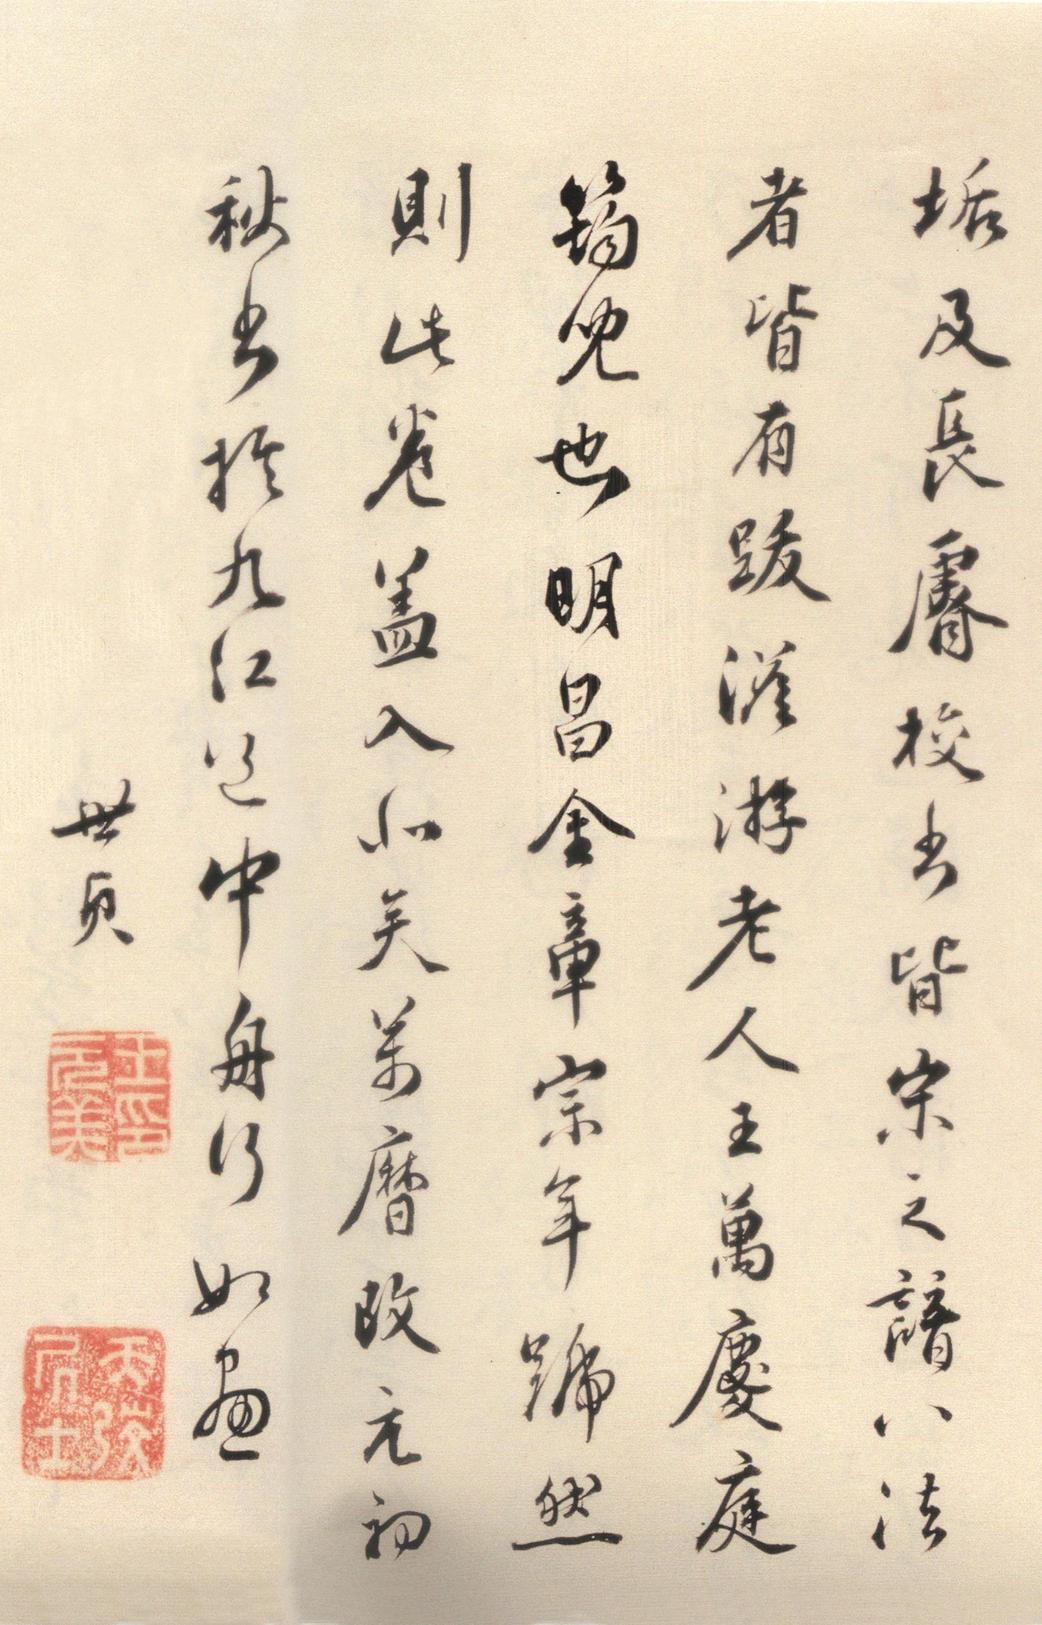 垢及長睿校书皆宋之譜八法
者皆有跋滏游老人王萬慶庭
筠兒也明昌金章宗年號然
則此卷盖入北矣萬曆改元初
秋书於九江道中舟行如畫
世貞
王印元美
天弢居士